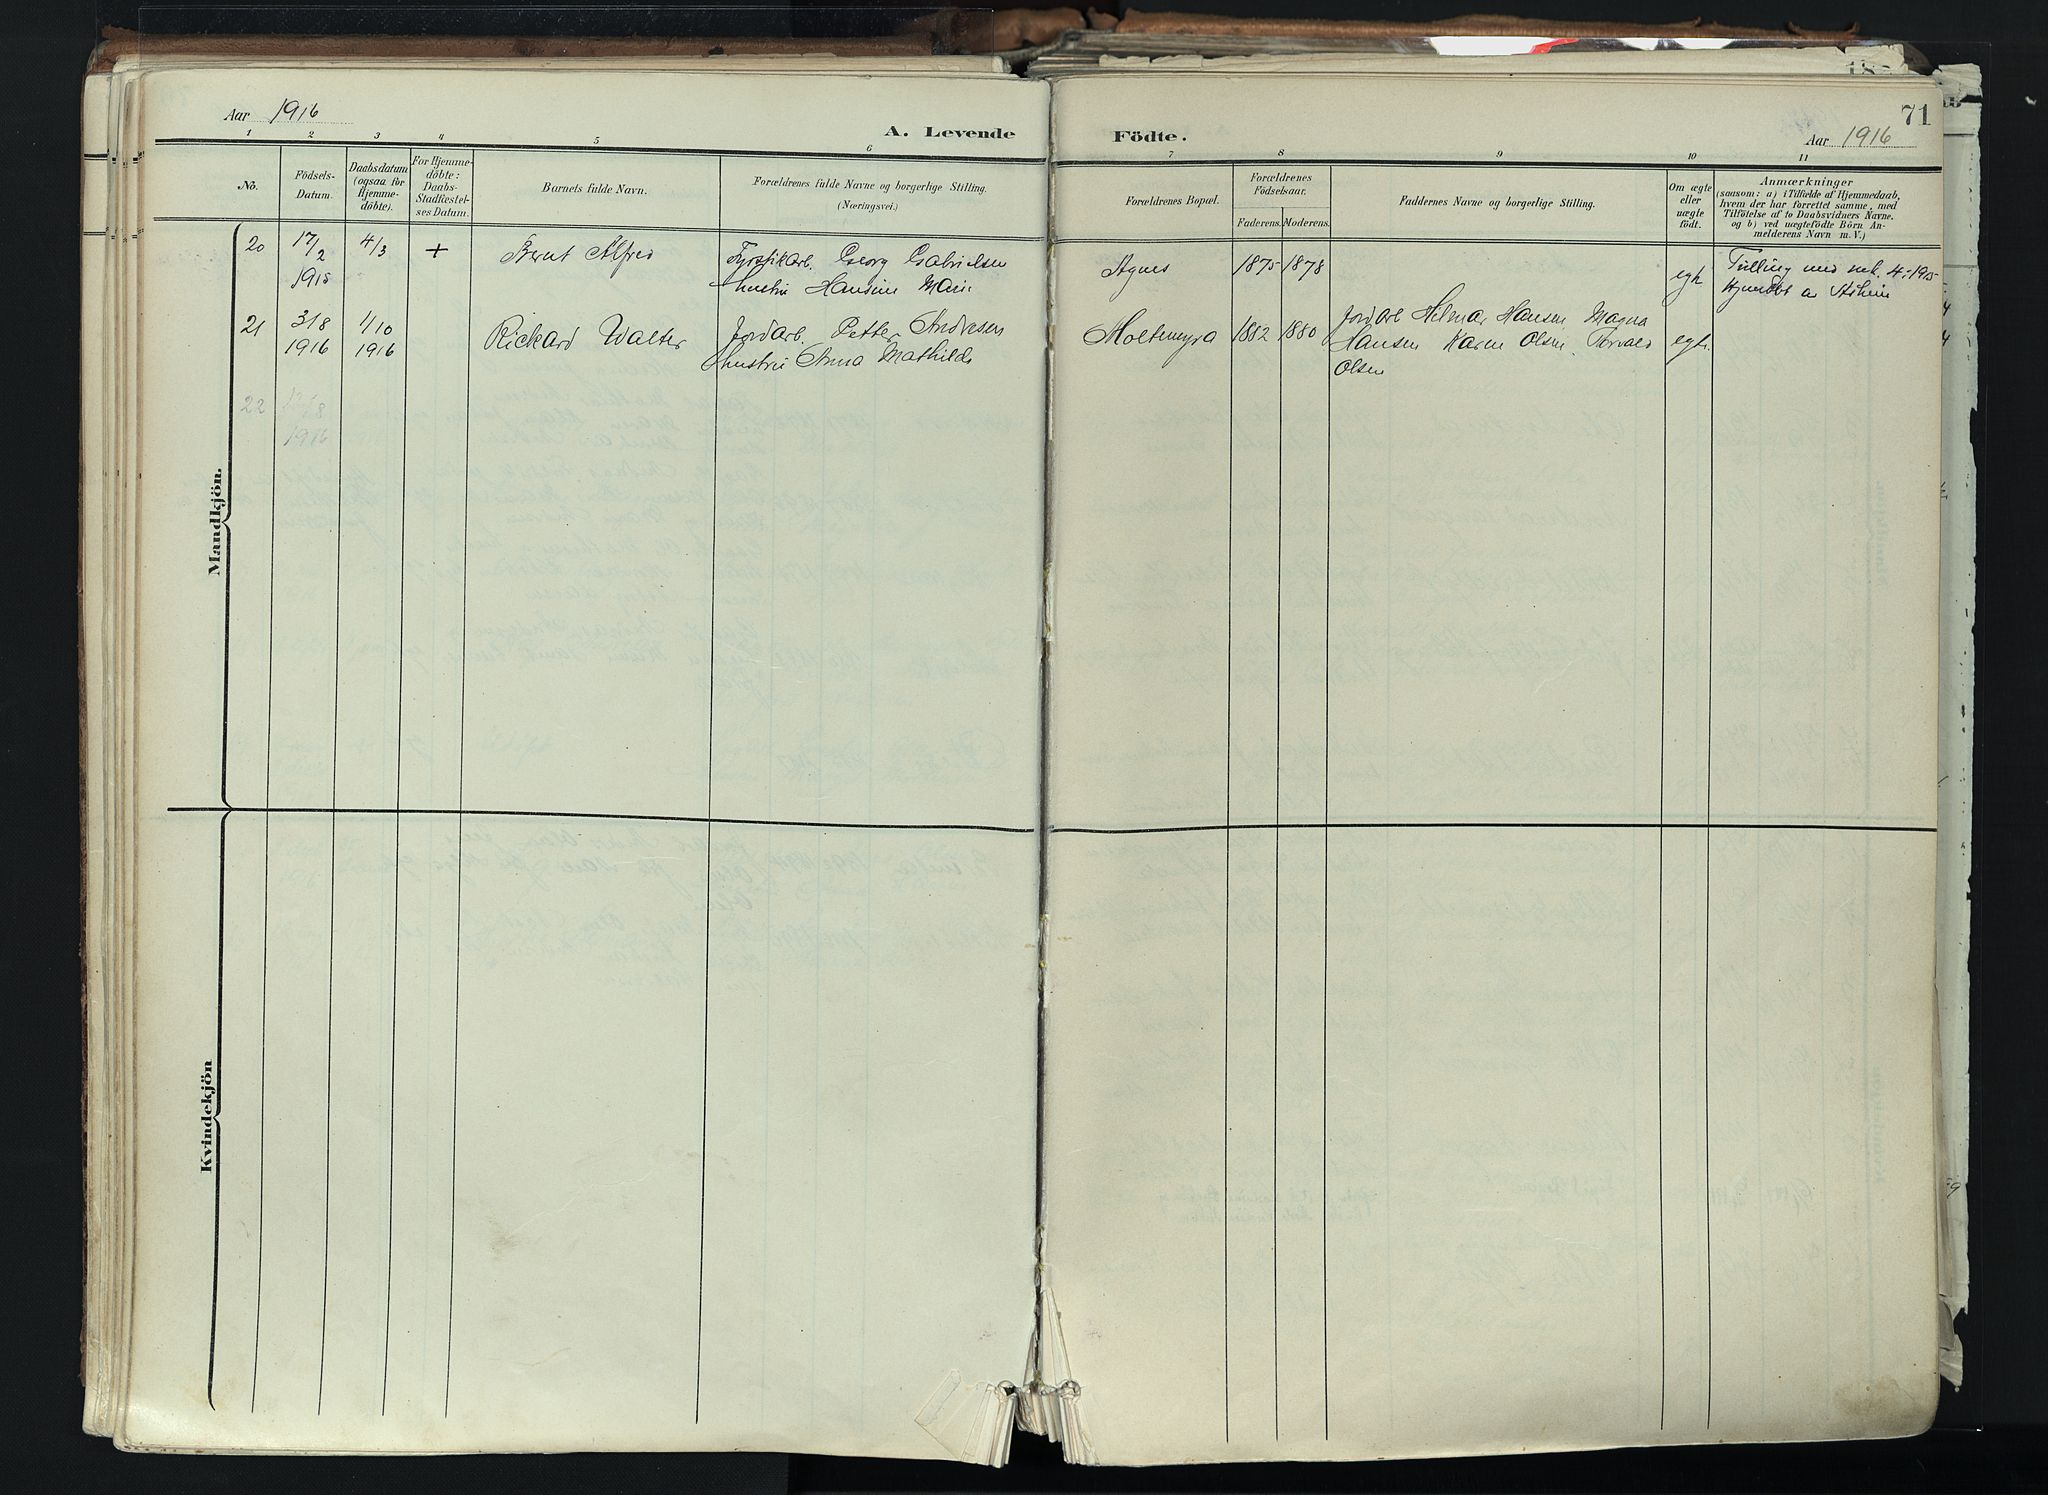 Aar 1916
A. Levende
Födte.
71
Aar 1916
1 2 3 4 5 6 7 8 9 10 11
No.
Födsels-
Datum.
Daabsdatum
(ogsaa for
Hjemme-
döbte).
For Hjemme-
döbte:
Daabs-
Stadfæstel-
ses Datum.
Barnets fulde Navn.
Forældrenes fulde Navne og borgerlige Stilling.
(Næringsvei.)
Forældrenes Bopæl.
Forældrenes
Födselsaar.
Faderens. Moderens.
Faddernes Navne og borgerlige Stilling.
Om ægte
eller
uægte
födt.
Anmærkninger
(saasom: a) i Tilfælde af Hjemmedaab,
hvem der har forrettet samme, med
Tilföielse af to Daabsvidners Navne.
og b) ved uægtefödte Börn An-
melderens Navn m. V.)
Mandkjön.
20 17/2 4/3 + Bernt Alfred Fyrstikarb. Georg Gabrielsen Agnes 1875 1878
1915 hustru Hansine Marie egte Tvilling med nr. 4 - 1915
21 31/8 1/10 Rickard Walter Jordarb. Petter Andresen Moltemyra 1882 1880 Jordarb Hilmar Hansen, Magna
1916 1916 hustru Anna Mathilde Hansen Karen Olsen, Torvald egte.
Olsen
22
1916
Kvindekjön